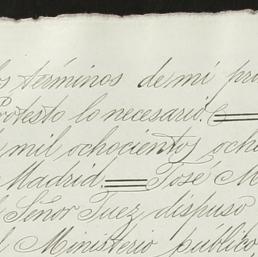 los términos de mi pro
Protesto lo necesario.
mil ochocientos ocho
Madrid. José M
Señor Juez dispuso
el Ministerio público,